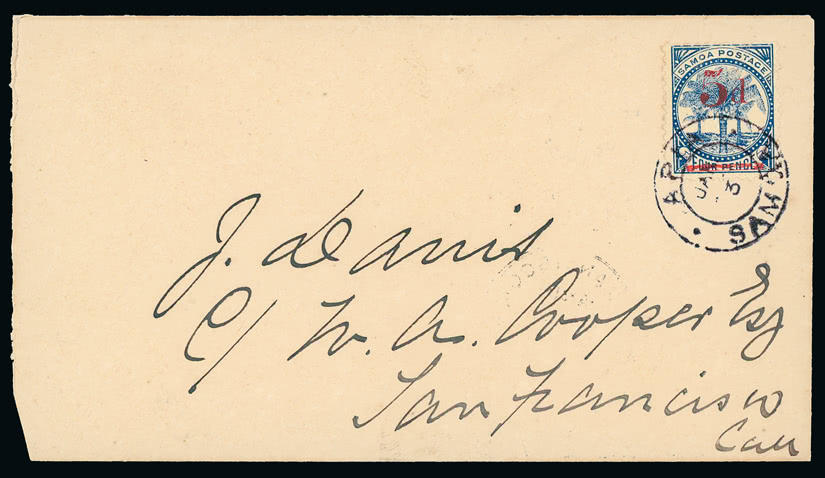 SAMOA POSTAGE
5d
FOUR PENCE
APIA
SAMOA
J. Davis
C/ W. A. Cooper Esq
San Francisco
Call